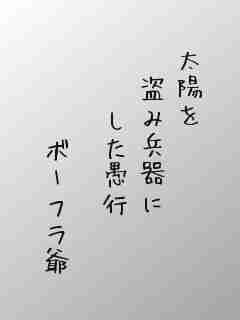 太陽を
盗み兵器に
した愚行
ボーフラ爺